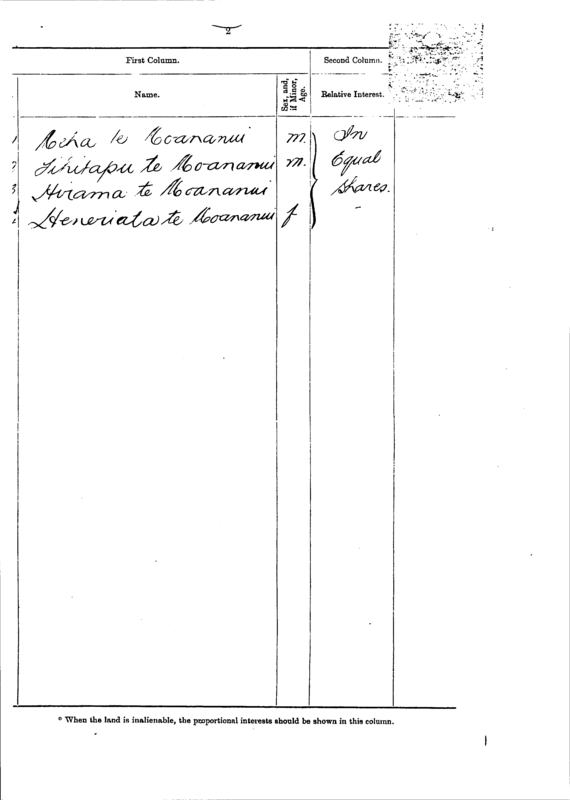 2
First Column. Second Column.
Name. Sex, and, if Minor, Age. Relative Interest.
1 te Moananui m. In
2 te Moananui m. Equal
3 Hirama te Moananui Shares.
Heneriata te Moananui f
* When the land is inalienable, the proportional interests should be shown in this column.